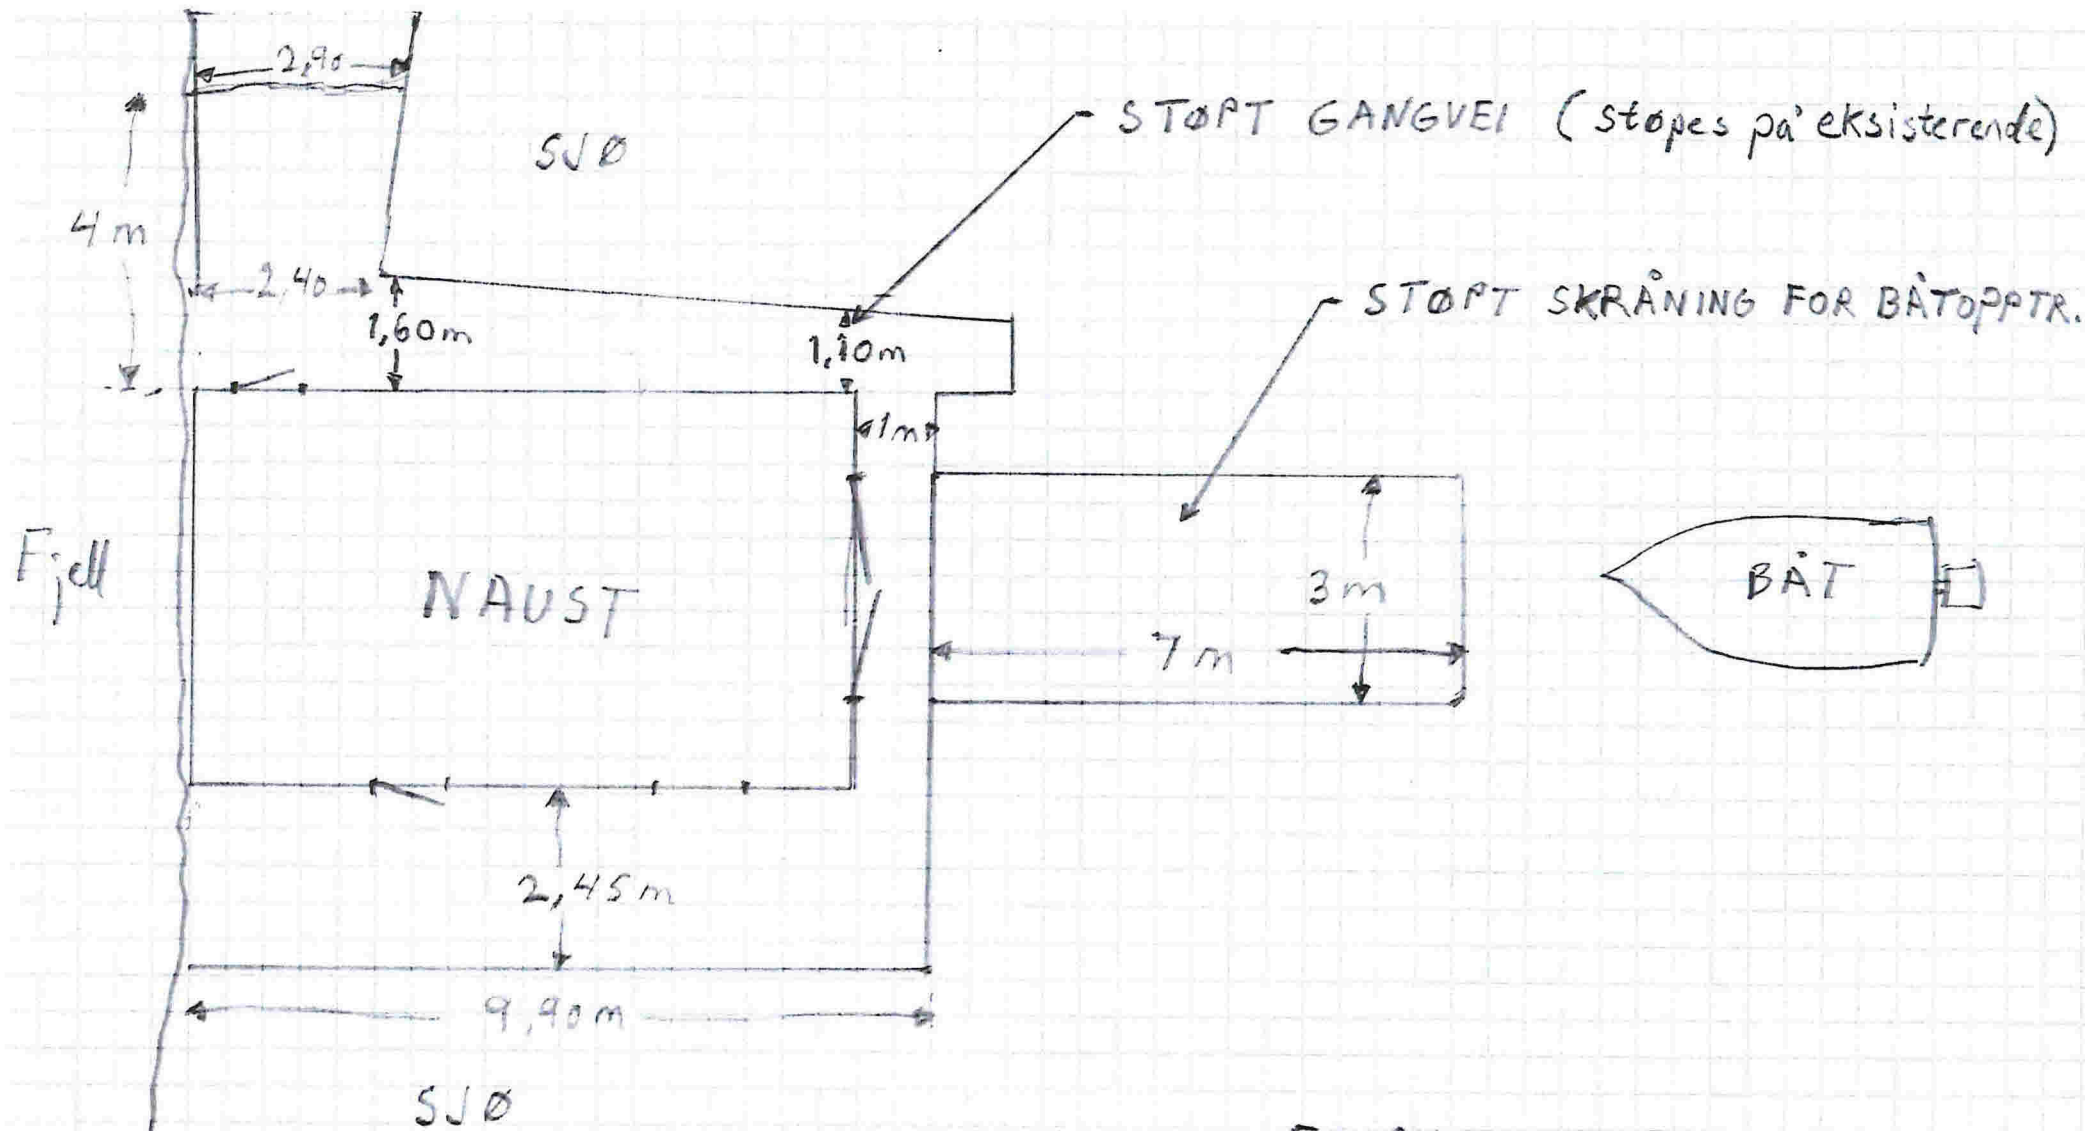 2,90
STØPT GANGVEI (støpes på eksisterende)
SJØ
4 m
2,40
1,60m
1,10m
STØPT SKRÅNING FOR BÅTOPPTR.
1m
Fjell
NAUST
3m
7 m
BÅT
2,45m
9,90m
SJØ